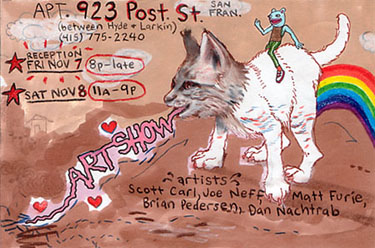 APT. 923 Post. St. SAN FRAN.
(between Hyde + Larkin)
(415) 775-2240
RECEPTION
FRI NOV 7 8p-late
SAT NOV 8 11a-9p
ART SHOW
artists
Scott Carl, Joe Neff, Matt Furie,
Brian Pedersen, Dan Nachtrab